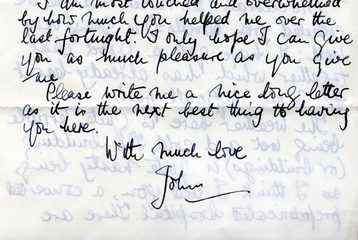 I am most touched and overwhelmed
by how much you helped me over the
last fortnight. I only hope I can give
you as much pleasure as you give
me
Please write me a nice long letter
as it is the next best thing to having
you here.
With much love
John